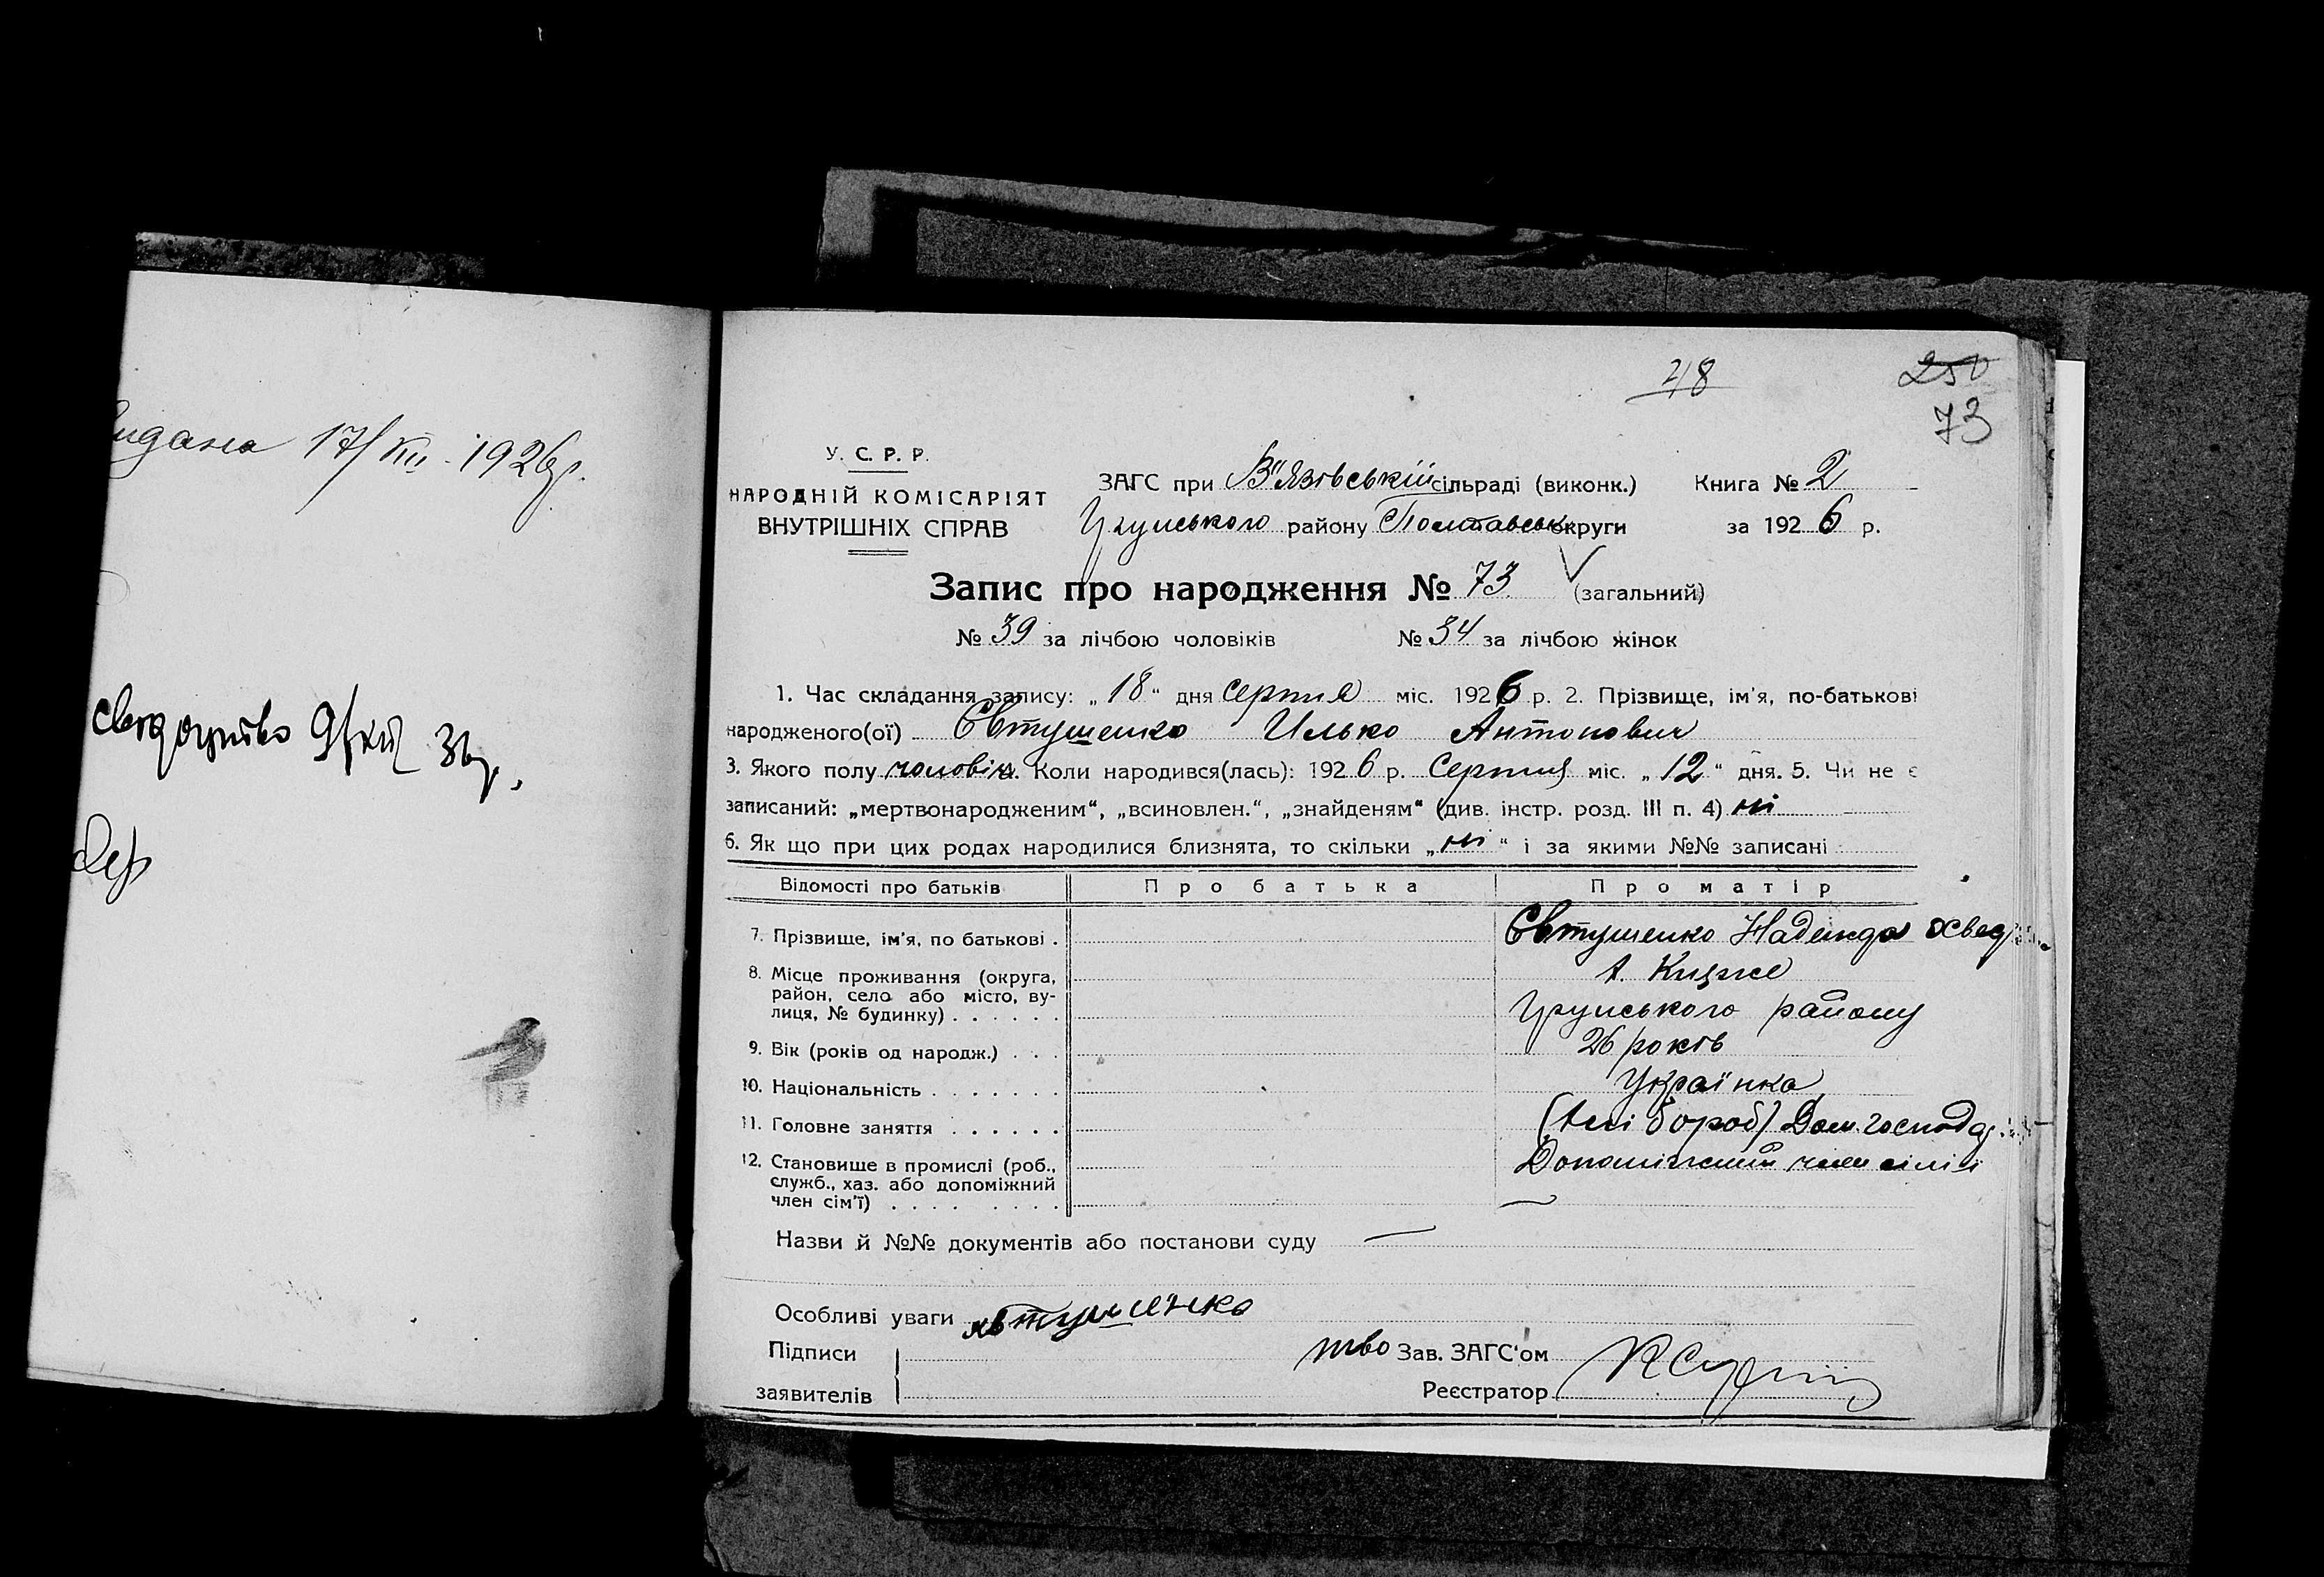 видана 17/XII - 1926 р.
свидоцтво 9/XII 36 р.
48
250
73
У. С. Р. Р.
НАРОДНІЙ КОМІСАРІЯТ
ВНУТРІШНІХ СПРАВ
ЗАГС при В'язівській сільраді (виконк.) Книга № 2
Грунського району Полтавськ округи за 1926 р.
Запис про народження № 73 (загальний)
№ 39 за лічбою чоловіків № 34 за лічбою жінок
1. Час складання запису: „18“ дня серпня міс. 1926 р. 2. Прізвище, ім'я, по-батькові
народженого(ої) Євтушенко Илько Антонович
3. Якого полу чоловіч. Коли народився(лась): 1926 р. Серпня міс. „12“ дня. 5. Чи не є
записаний: „мертвонародженим“, „всиновлен.“, „знайденям“ (див. інстр. розд. III п. 4) ні
6. Як що при цих родах народилися близнята, то скільки „ні“ і за якими №№ записані
Відомості про батьків Про батька Про матір
7. Прізвище, ім'я, по батькові . Євтушенко Надежда
8. Місце проживання (округа,
район, село або місто, ву-
лиця, № будинку) . . . . . . Грунського району
9. Вік (років од народж.) . . . 26 років
10. Національність . . . . . . . Українка
11. Головне заняття . . . . . . Дом. господар
12. Становище в промислі (роб.,
служб., хаз. або допоміжний
член сім'ї) . . . . . . . . Допоміжний член сімїі
Назви й №№ документів або постанови суду —
Особливі уваги
Підписи
заявителів
тво Зав. ЗАГС'ом
Реєстратор